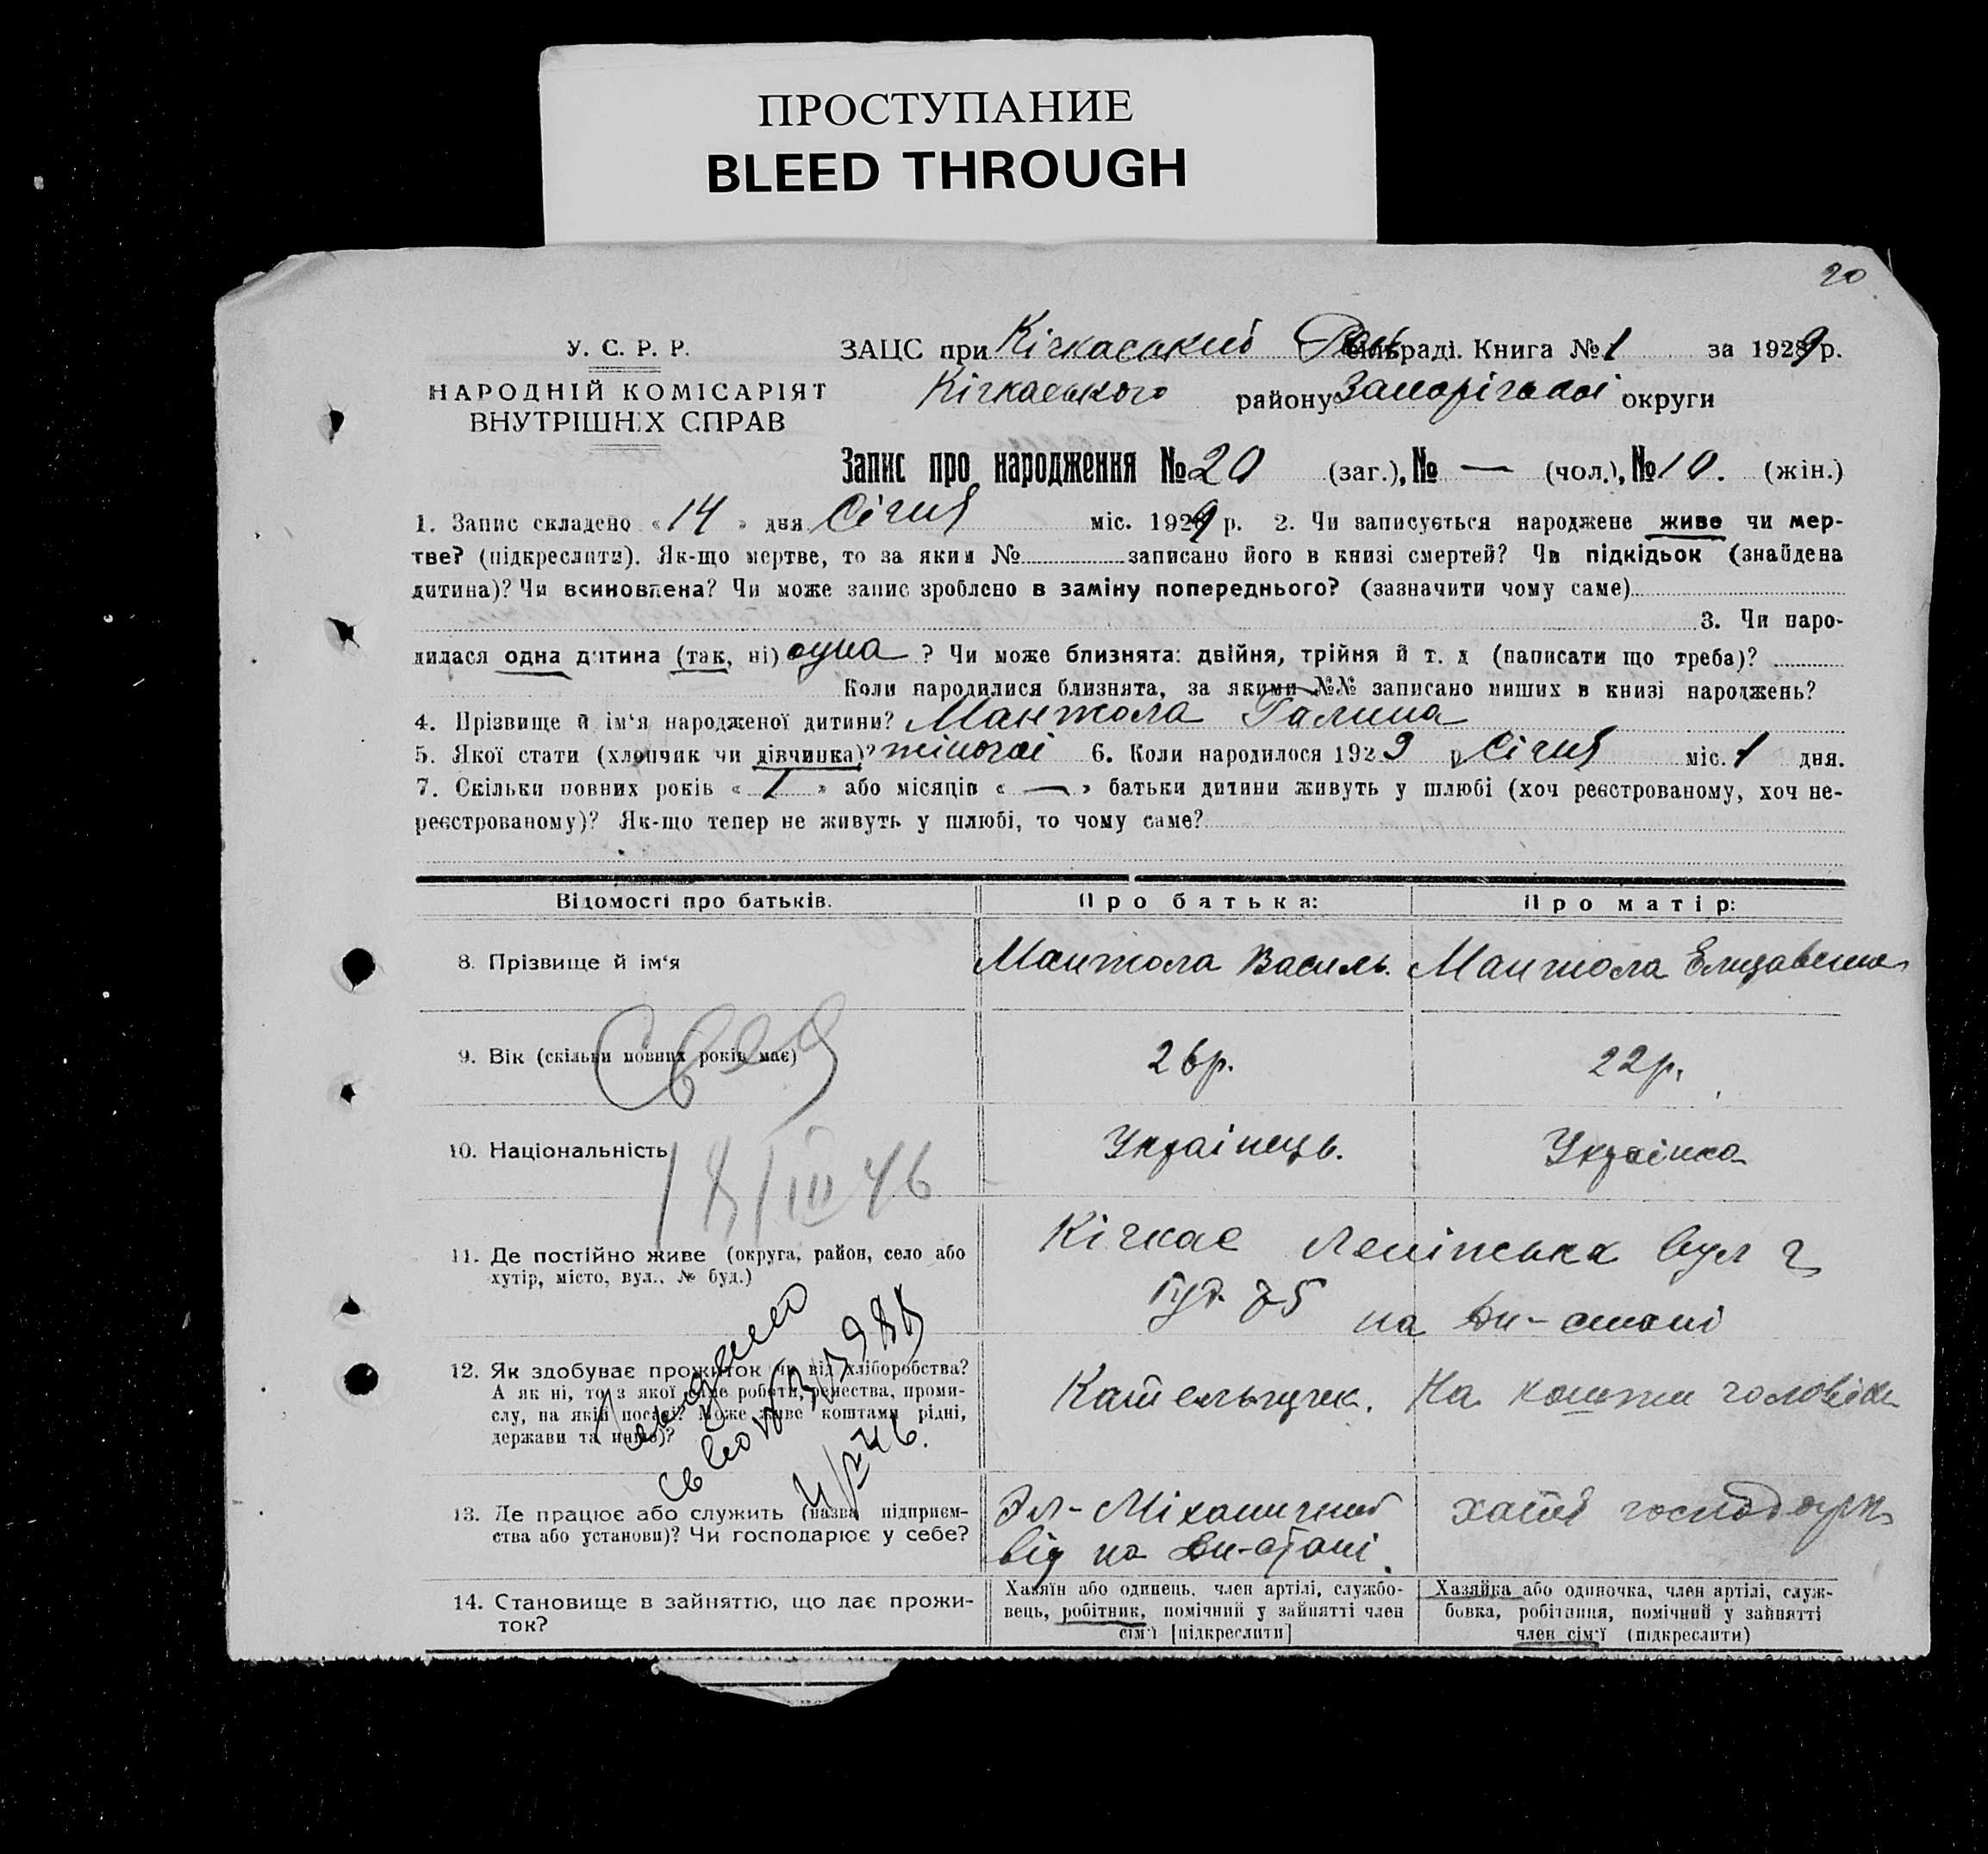 ПРОСТУПАНИЕ
BLEED THROUGH
20
У. С. Р. Р.
НАРОДНІЙ КОМІСАРІЯТ
ВНУТРІШНІХ СПРАВ
ЗАЦС при Кічкаський раді. Книга № 1 за 1929 р.
Кічкаського району Запорізької округи
Запис про народження № 20 (заг.), № — (чол.), № 10. (жін.)
1. Запис складено «14» дня Січня міс. 1929 р. 2. Чи записується народжене живе чи мер-
тве? (підкреслити). Як-що мертве, то за яким № записано його в книзі смертей? Чи підкідьок (знайдена
дитина)? Чи всиновлена? Чи може запис зроблено в заміну попереднього? (зазначити чому саме)
3. Чи наро-
дилася одна дитина (так, ні) одна ? Чи може близнята: двійня, трійня й т. д (написати що треба)?
Коли народилися близнята, за якими №№ записано инших в книзі народжень?
4. Прізвище й ім‘я народженої дитини? Манжола Галина
5. Якої стати (хлопчик чи дівчинка)? жіночої 6. Коли народилося 1929 р Січня міс. 1 дня.
7. Скільки повних років «1» або місяців «—» батьки дитини живуть у шлюбі (хоч реєстрованому, хоч не-
реєстрованому)? Як-що тепер не живуть у шлюбі, то чому саме?
Відомості про батьків. Про батька: Про матір:
8. Прізвище й ім‘я Манжола Василь. Манжола Елизавета
9. Вік (скільки повних років має) 26р. 22р.
10. Національність Українець. Українка
III 46
11. Де постійно живе (округа, район, село або
хутір, місто, вул., № буд.)
Кічкас Ленінська вул
на Дн-стані
12. Як здобуває прожиток чи від хліборобства?
А як ні, то з якої саме роботи, ремества, проми-
слу, на якій посаді? Може живе коштами рідні,
держави та инше)?
На кошти чоловіка
13. Де працює або служить (назва підприєм-
ства або установи)? Чи господарює у себе?
Эл-Міханичний
від на Дн-стані.
хатня господарка
14. Становище в зайняттю, що дає прожи-
ток?
Хазяїн або одинець, член артілі, службо-
вець, робітник, помічний у зайнятті член
сім‘ї [підкреслити]
Хазяйка або одиночка, член артілі, служ-
бовка, робітниця, помічний у зайнятті
член сім‘ї (підкреслити)